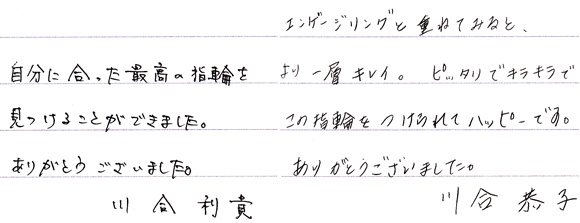 自分に合った最高の指輪を
見つけることができました。
ありがとうございました。
川合 利貴
エンゲージリングと重ねてみると、
より一層キレイ。ピッタリでキラキラで
この指輪をつけられてハッピーです。
ありがとうございました。
川合 恭子